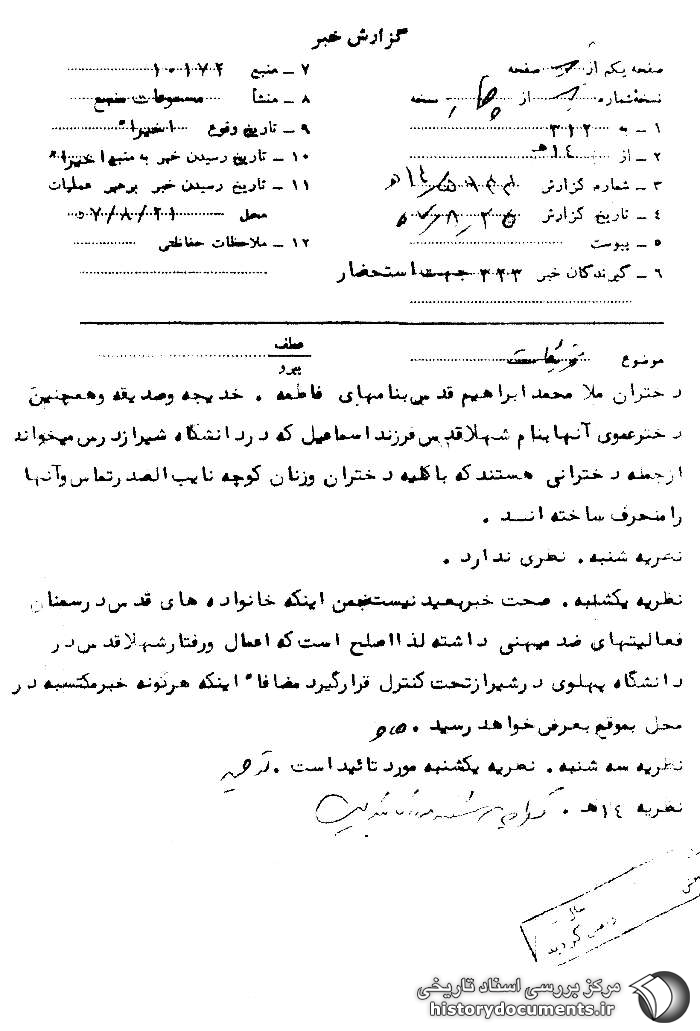 گزارش خبر
صفحه یکم از صفحه
نسخه شماره از چهار نسخه
۱ ـ به ۳۱۲
۲ ـ از ۱۴هـ
۳ ـ شماره گزارش ۱۴هـ
۴ ـ تاریخ گزارش
۵ ـ پیوست
۶ ـ گیرندگان خبر ۳۲۳ جهت استحضار
۷ ـ منبع ۱۰۱۷۲
۸ ـ منشأ مسموعات منبع
۹ ـ تاریخ وقوع اخیراً
۱۰ ـ تاریخ رسیدن خبر به منبع اخیراً
۱۱ ـ تاریخ رسیدن خبر برهبر عملیات
محل ۵۷/۸/۲۱
۱۲ ـ ملاحظات حفاظتی
موضوع
عطف
پیرو
دختران ملا محمد ابراهیم قدس بنامهای فاطمه . خدیجه وصدیقه وهمچنین
دخترعموی آنها بنام شهلا قدس فرزند اسماعیل که در دانشگاه شیراز درس میخواند
ازجمله دخترانی هستند که باکلیه دختران وزنان کوچه نایب الصدر تماس وآنها
را منحرف ساخته اند .
نظریه شنبه . نظری ندارد .
نظریه یکشنبه . صحت خبر بعید نیست ضمن اینکه خانواده های قدس در سمنان
فعالیتهای ضد میهنی داشته لذا اصلح است که اعمال ورفتار شهلا قدس در
دانشگاه پهلوی در شیراز تحت کنترل قرار گیرد مضافاً اینکه هرگونه خبر مکتسبه در
محل بموقع بعرض خواهد رسید .
نظریه سه شنبه . نظریه یکشنبه مورد تائید است .
نظریه ۱۴هـ .
گردید
مرکز بررسی اسناد تاریخی
historydocuments.ir